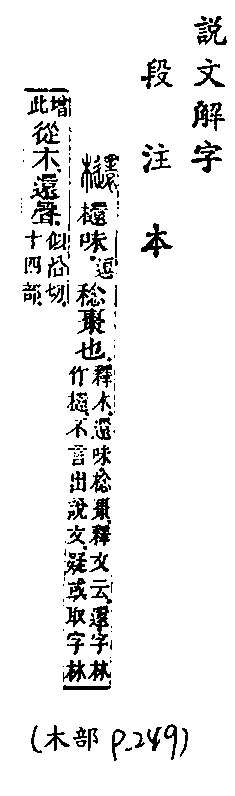 說文解字
段注本
味.逗稔棗也.
釋木.還味.稔棗.釋文云.還字林
作.不言出說文.疑或取字林
增
此
從木.還聲.
似沿切.
十四部.
(木部 p.249)